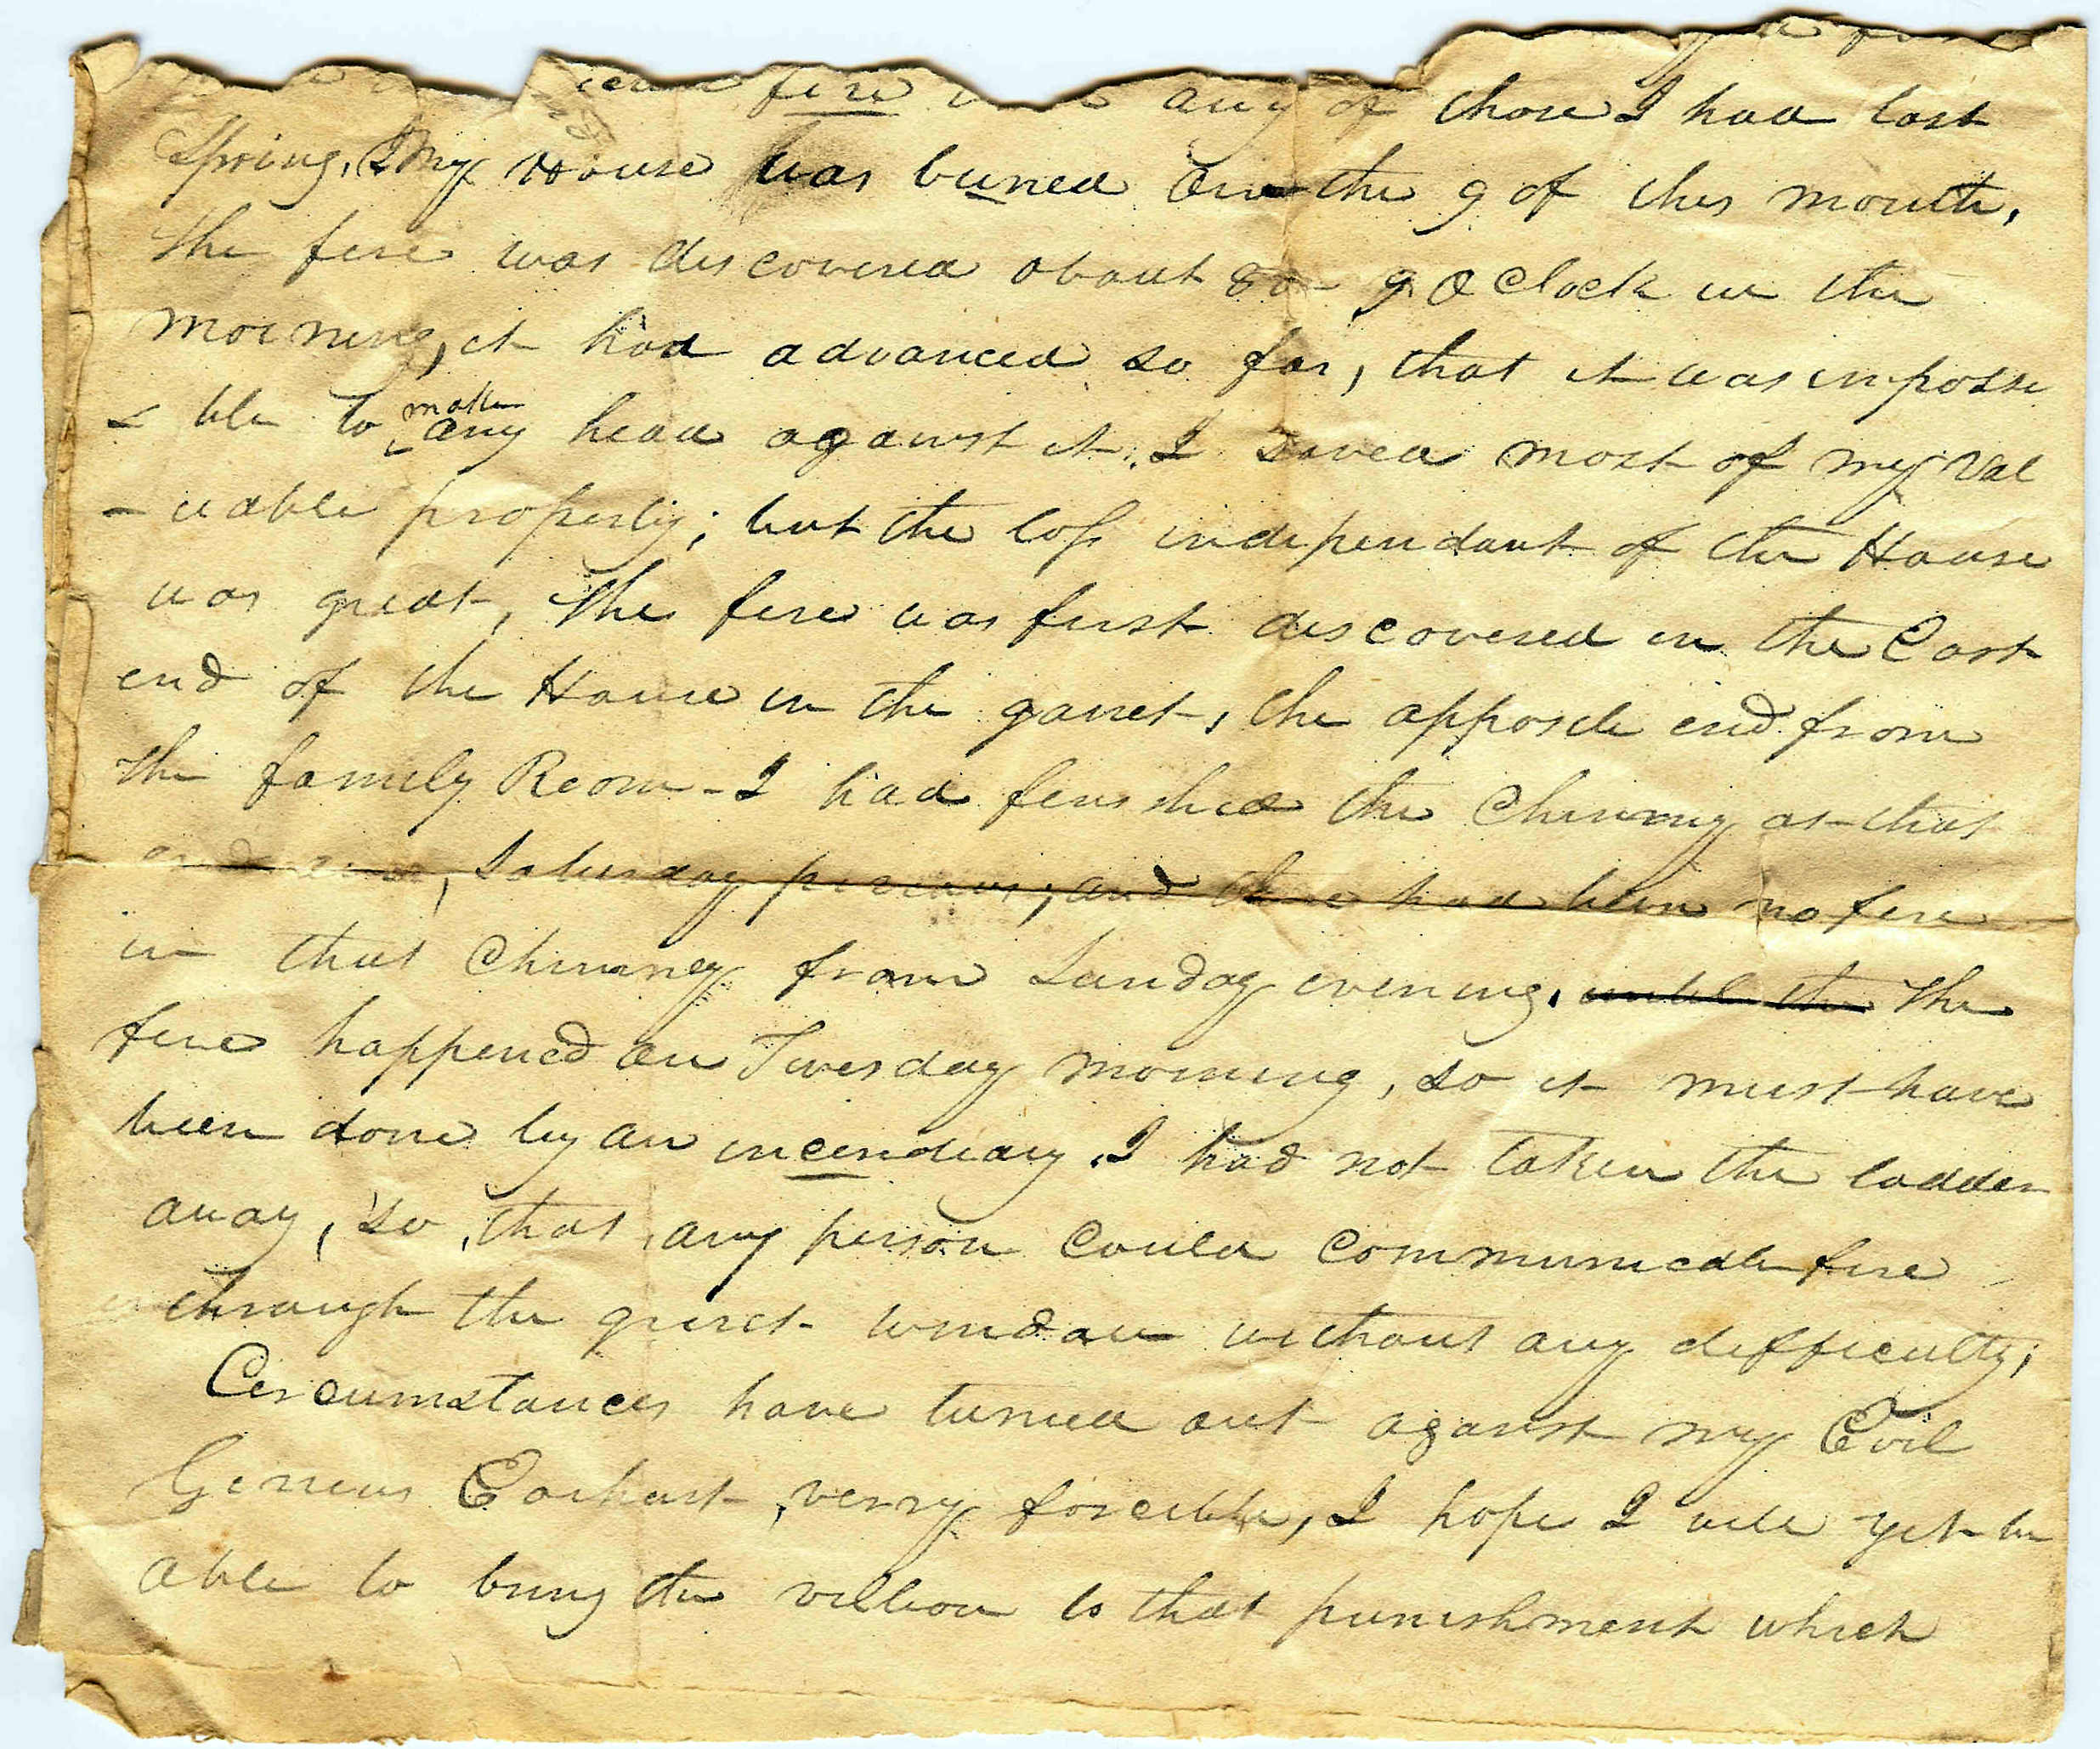 fire any of those I had last
Spring, My House was buned on the 9 of this month,
the fire was discovered about 8 or 9 OClock in the
morning, it had advanced so far, that it was impossi
- ble to make any head against it. I saved most of my Val
- uable property; but the loss independant of the House
was great, the fire was first discovered in the East
end of the House in the garret, the opposite end from
the family Room - I had finished the Chimny at that
Saturday previous, and there had been no fire
in that Chimney from Sunday evening. until the The
fire happened on Tuesday morning, so it must have
been done by an incendiary. I had not taken the ladder
away, so that any person could communicate fire
through the garret window without any difficulty;
Circumstances have turned out against my Evil
Genius verry forcible, I hope I will yet be
able to bring the villian to that punishment which